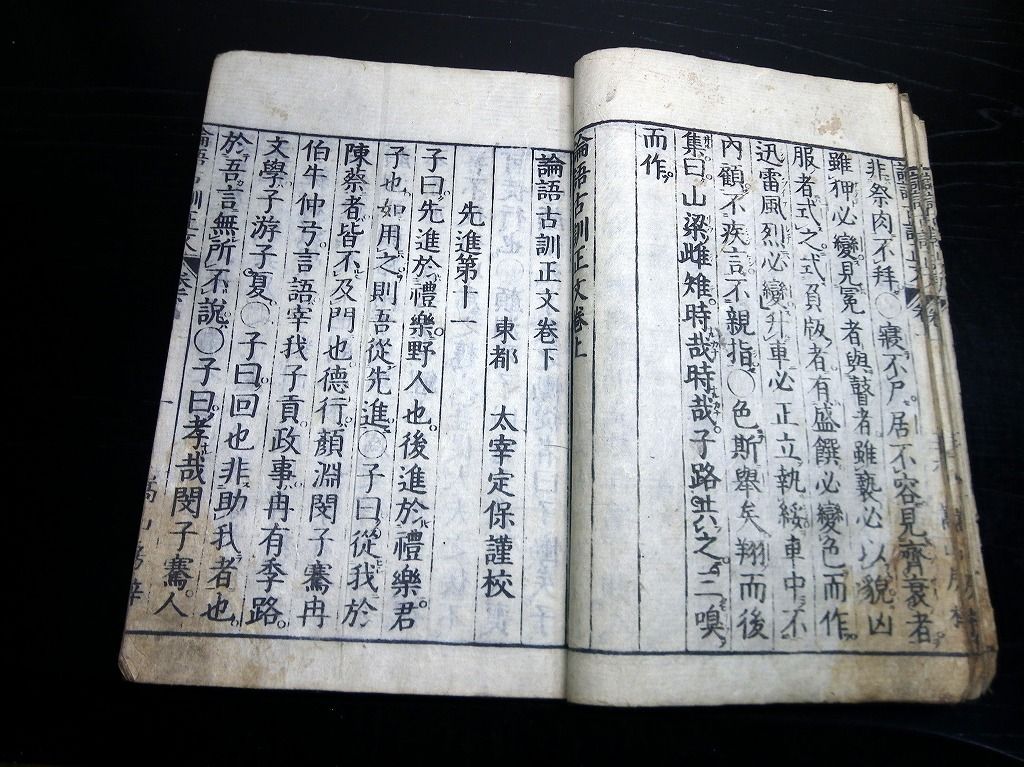 非祭肉不拜○寢不尸居不容見齊衰者
雖狎必變見冕者與瞽者雖褻必以貌凶
服者式之式負版者有盛饌必變色而作
迅雷風烈必變升車必正立執綏車中不
內顧不疾言不親指○色斯舉矣翔而後
集曰山梁雌雉時哉時哉子路共之三嗅
而作
論語古訓正文卷上
論語古訓正文卷下
東都 太宰定保謹校
先進第十一
子曰先進於禮樂野人也後進於禮樂君
子也如用之則吾從先進○子曰從我於
陳蔡者皆不及門也德行顏淵閔子騫冉
伯牛仲弓言語宰我子貢政事冉有季路
文學子游子夏○子曰回也非助我者也
於吾言無所不說○子曰孝哉閔子騫人